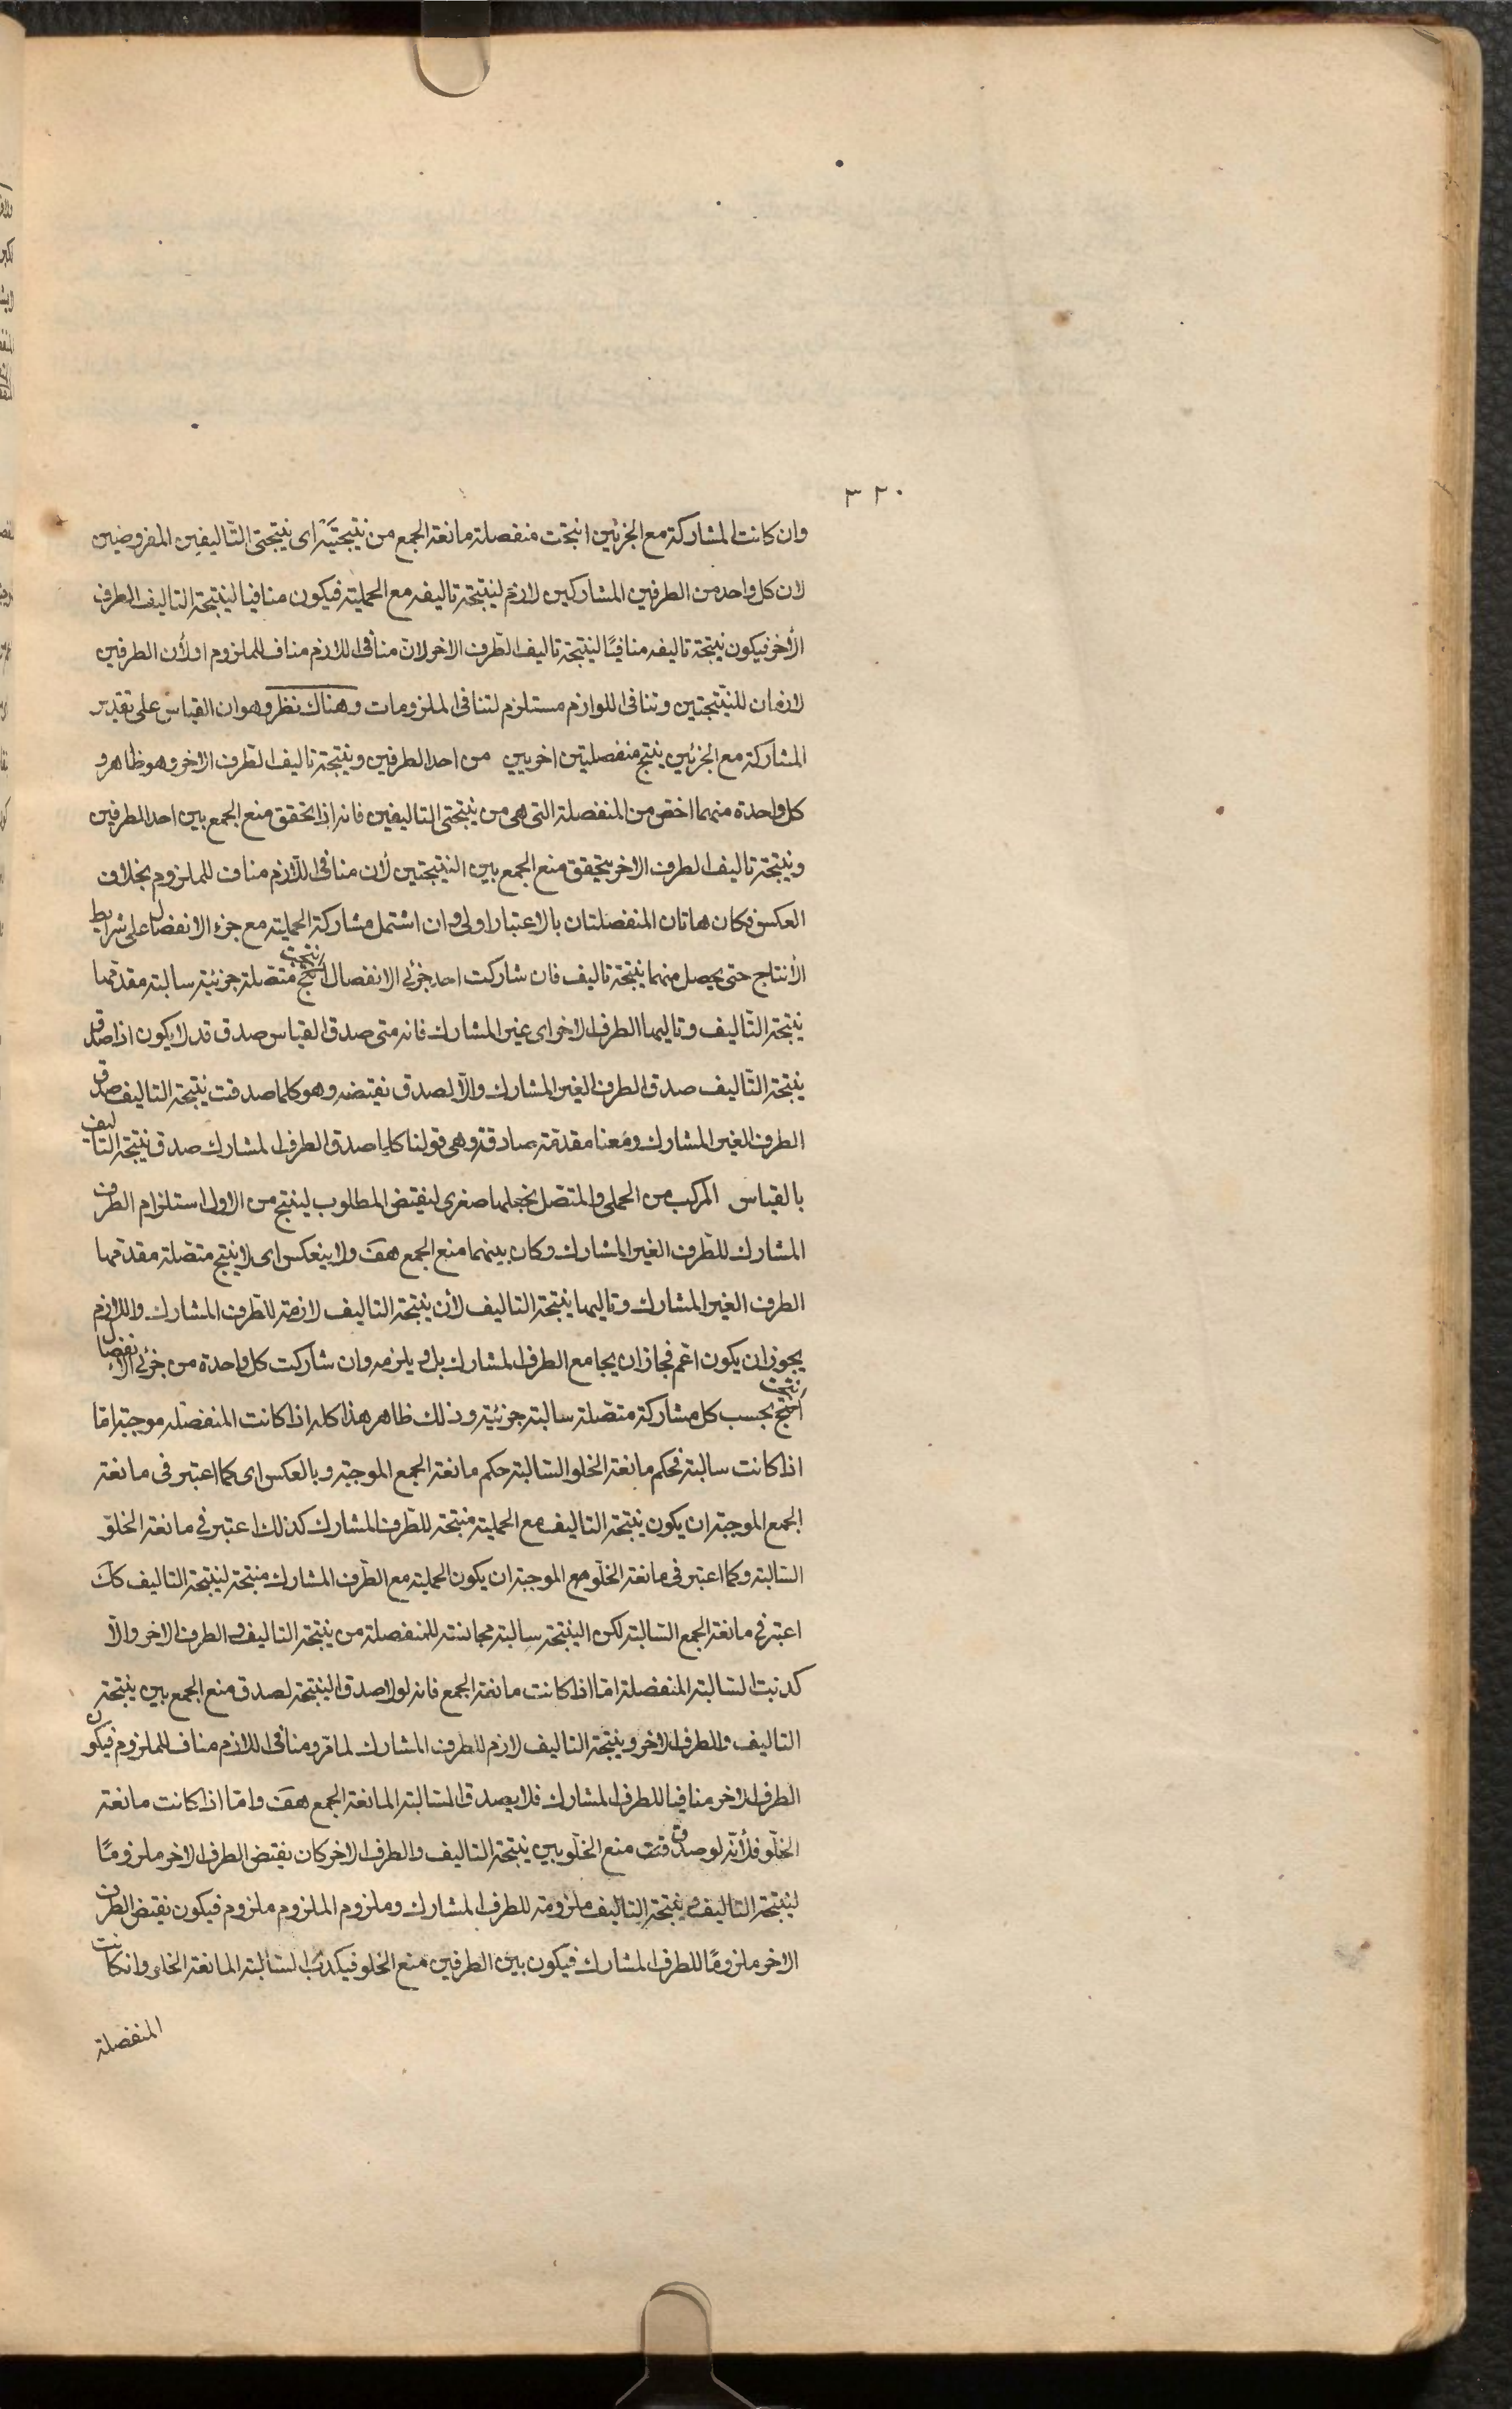 ٣٢٠
وان كانت المشاركة مع الجزئين انتجت منفصلة مانعة الجمع من نتيجتيه اى نتيجتى التأليفين المفروضين
لان كل واحد من الطرفين المشاركين لازم لنتيجة تاليفه مع الحملية فيكون منافيا لنتيجة التاليف الطرف
الأخر فيكون نتيجة تاليفه منافيًا لنتيجة تاليف الطّرف الاخر لان منافى اللازم مناف للملزوم او لأن الطرفين
لازمان للنّتيجتين وتنافى اللوازم مستلزم لتنافى الملزومات وهناك نظر وهو ان القياس على تقدير
المشاركة مع الجزئين ينتج منفصلتين اخريين من احد الطرفين ونتيجة تاليف الطّرف الاخر وهو ظاهر و
كل واحدة منهما اخص من المنفصلة التى هى من نتيجتى التاليفين فانه اذا تحقق منع الجمع بين احد الطرفين
ونتيجة تاليف الطرف الاخر يتحقق منع الجمع بين النتيجتين لأن منافى اللّازم مناف للملزوم بخلاف
العكس فكان هاتان المنفصلتان بالاعتبار اولى وان اشتمل مشاركة الحملية مع جزء الانفصال على شرايط
الأنتاج حتى يحصل منهما نتيجة تاليف فان شاركت احد جزئى الانفصال انتجت متصلة جزئية سالبة مقدّمها
نتيجة التّاليف وتاليها الطرف الاخر اى غير المشارك فانه متى صدق القياس صدق قد لا يكون اذا صدق
نتيجة التّاليف صدق الطرف الغير المشارك والّا لصدق نقيضه وهو كلما صدقت نتيجة التاليف صدق
الطرف الغير المشارك ومعنا مقدّمة صادقة وهى قولنا كلما صدق الطرف المشارك صدق نتيجة التاليف
بالقياس المركب من الحملى والمتصل نجعلها صغرى لنقيض المطلوب لينتج من الاول استلزام الطرف
المشارك للطّرف الغير المشارك وكان بينهما منع الجمع هف ولا ينعكس اى لا ينتج متصّلة مقدّمها
الطرف الغير المشارك وتاليها نتيجة التاليف لأن نتيجة التاليف لازمة للطّرف المشارك واللازم
يجوز ان يكون اعّم فجاز ان يجامع الطرف المشارك بل و يلزمه وان شاركت كل واحدة من جزئى الانفصال
انتجت بحسب كل مشاركة متصّلة سالبة جزئية وذلك ظاهر هذا كله اذا كانت المنفصّله موجبة امّا
اذا كانت سالبة فحكم مانعة الخلو السّالبة حكم مانعة الجمع الموجبّة وبالعكس اى كما اعتبر فى مانعة
الجمع الموجبة ان يكون نتيجة التاليف مع الحملية منتجة للطّرف المشارك كذلك اعتبر في مانعة الخلوّ
السّالبة وكما اعتبر فى مانعة الخلّو مع الموجبة ان يكون الحملية مع الطّرف المشارك منتجة لنتيجة التاليف كك
اعتبر في مانعة الجمع السّالبة لكن النتيجة سالبة مجانسة للمنفصلة من نتيجة التاليف والطرف الاخر والّا
كذبت السّالبة المنفصّلة امّا اذا كانت مانعة الجمع فانه لولا صدق النتيجة لصدق منع الجمع بين نتيجة
التاليف والطرف الاخر ونتيجة التاليف لازم للطرف المشارك لما مّر ومنافى اللازم مناف للملزوم فيكون
الطرف الاخر منافيا للطرف المشارك فلا يصدق السّالبة المانعة الجمع هف وامّا اذا كانت مانعة
الخلّو فلأنّه لو صدقت منع الخلّو بين نتيجة التاليف والطرف الاخر كان نقيض الطرف الاخر ملزومًا
لنتيجة التاليف ونتيجة التاليف ملزومة للطرف المشارك وملزوم الملزوم ملزوم فيكون نقيض الطرف
الاخر ملزومًا للطرف المشارك فيكون بين الطرفين منع الخلو فيكذب السّالبة المانعة الخلو وان كانت
المنفصلة